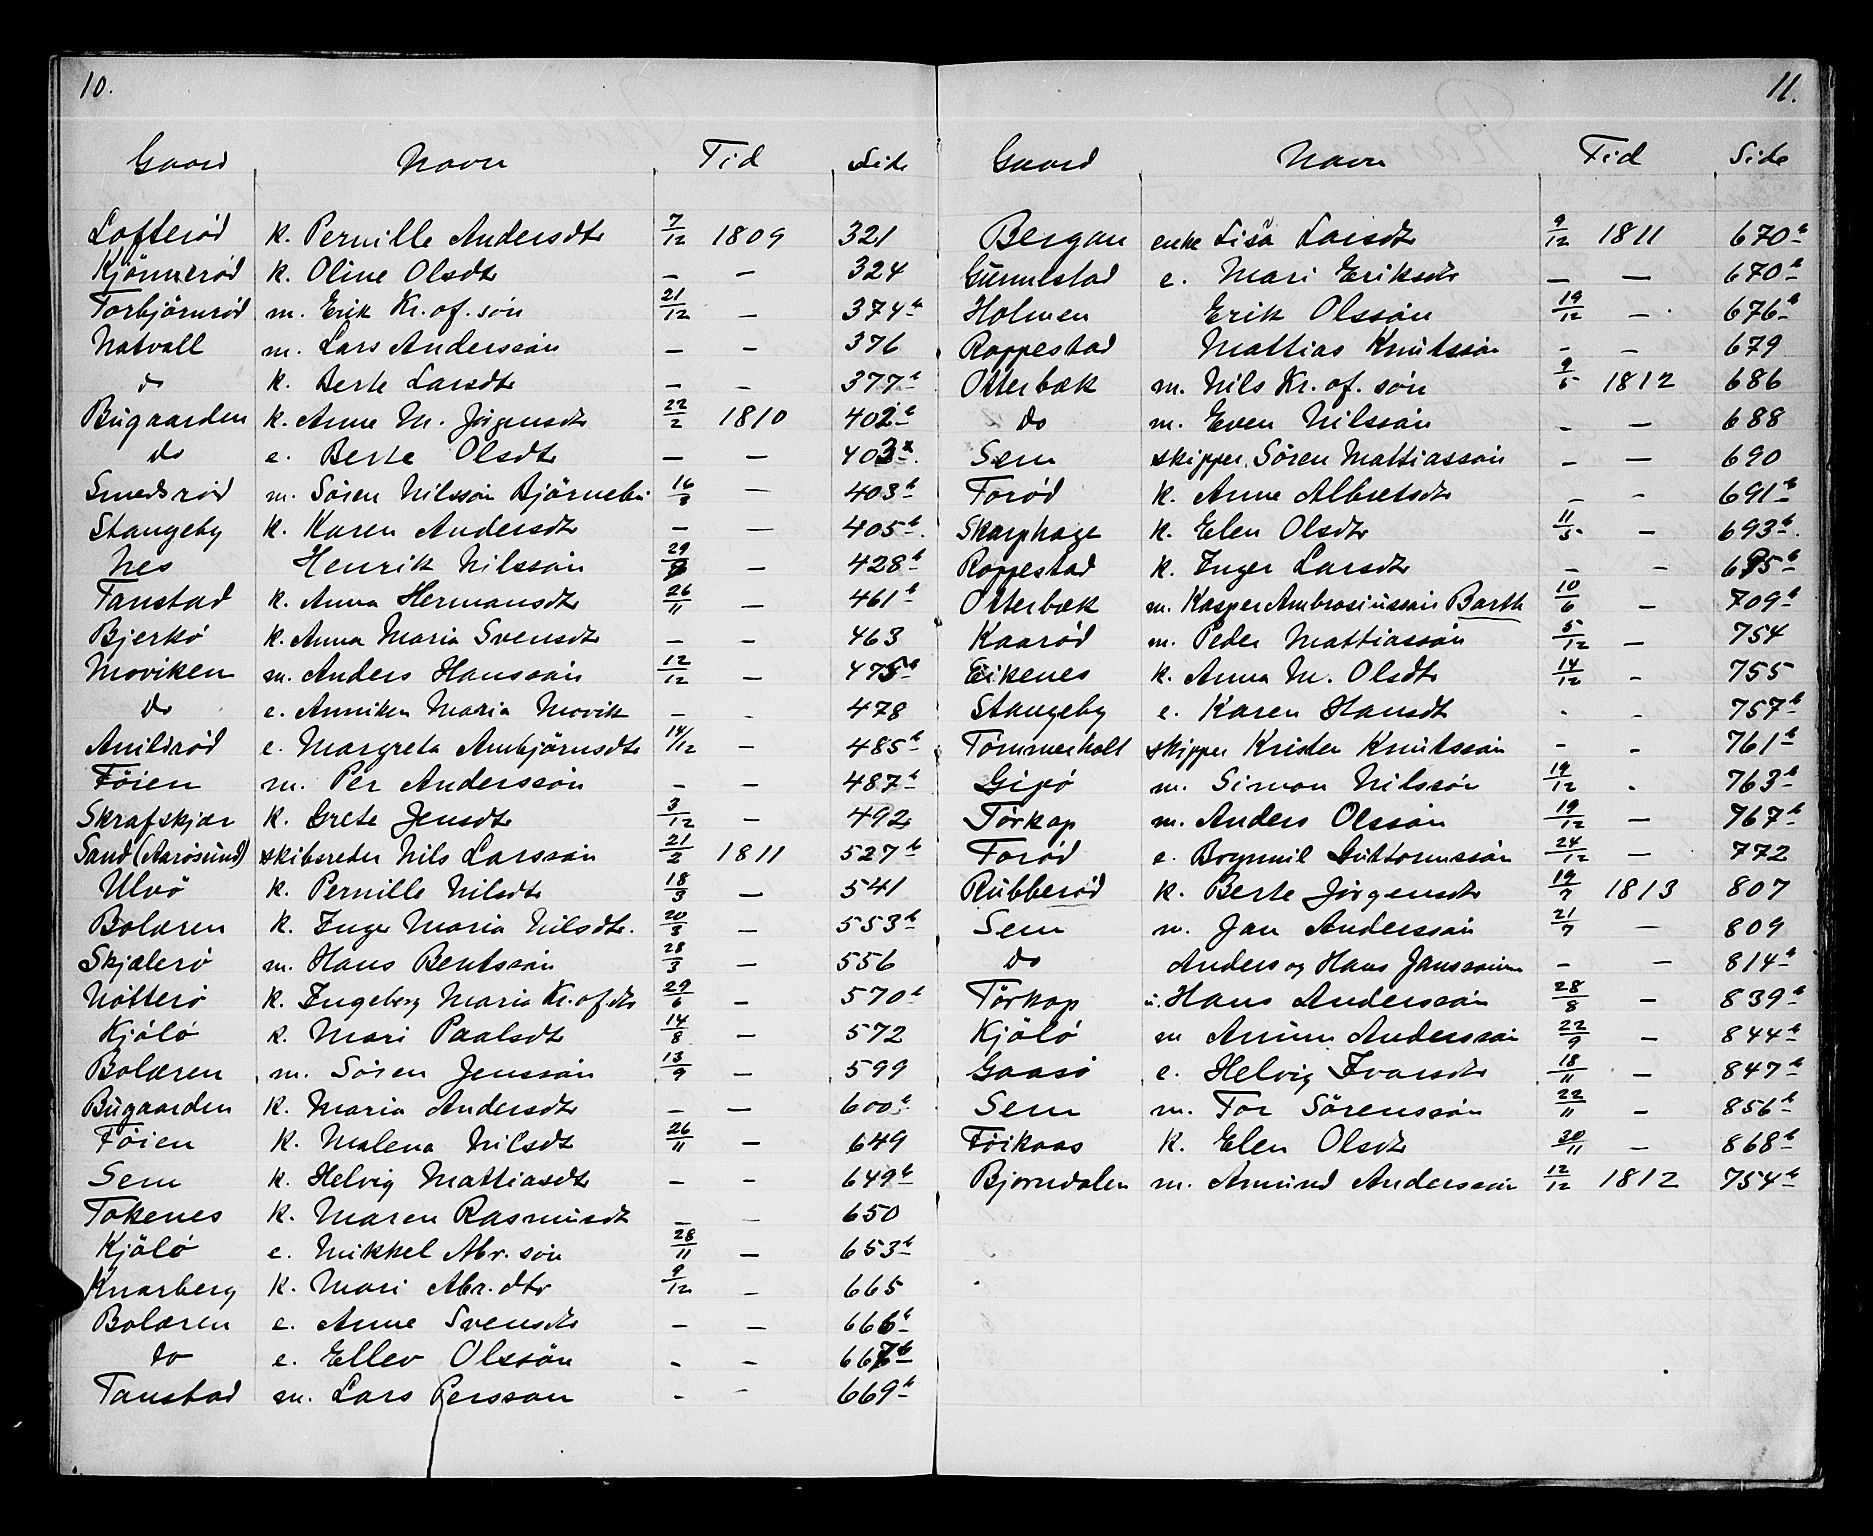 10.
Gaard Navn Tid Side
Lofterød k. Pernille Andersdtr 7/12 1809 321
Kjönnerød k. Oline Olsdtr — — 324
Torbjörnrød m. Erik Kr.of.søn 21/12 — 374b
Natvall m. Lars Anderssøn — — 376
do k. Berte Larsdtr — — 377b
Bugaarden k. Anne M. Jörgensdtr 22/2 1810 402b
do e. Berte Olsdtr — — 403
Smedsrød m. Sören Nilssøn Björnebu 16/3 — 403b
Stangeby k. Karen Andersdtr — — 405b
Nes Henrik Nilssøn 29/ — 428b
Tanstad k. Anna Hermansdtr 26/11 — 461b
Bjerkø k. Anna Maria Svensdtr — — 463
Moviken m. Anders Hanssøn 12/12 — 475b
do e. Anniken Maria Movik — — 478
Anildrød e. Margreta Ambjörnsdtr 14/12 — 485b
Föien m. Per Anderssøn — — 487b
Skrafskjær k. Grete Jensdtr 3/12 — 492
Sand (Aarösund) skibsreder Nils Larssøn 21/2 1811 527b
Ulvö k. Pernille Nilsdtr 18/3 — 541
Bolæren k. Inger Maria Nilsdtr. 20/3 — 553b
Skjælerø m. Hans Bentssøn 28/3 — 556
Nötterø k. Ingeborg Maria Kr.of.dtr 29/6 — 570b
Kjölö k. Mari Paalsdtr 14/8 — 572
Bolæren m. Sören Jenssøn 13/9 — 599
Bugaarden k. Maria Andersdtr — — 600b
Föien k. Malena Nilsdtr 26/11 — 649
Sem k. Helvig Mattiasdtr — — 649b
Tokenes k. Maren Rasmusdtr — — 650
Kjölö e. Mikkel Abr.søn 28/11 — 653b
Knarberg k. Mari Abr.dtr 9/12 — 665
Bolæren e. Anne Svensdtr — — 666b
do e. Ellev Olssøn — — 667b
Tanstad m. Lars Perssøn — — 669b
11.
Gaard Navn Tid Side
Bergan enke Lisa Larsdtr 9/12 1811 670b
Gunnestad e. Mari Eriksdtr — — 670b
Holmen Erik Olssøn 19/12 — 676b
Roppestad Mattias Knutssøn — — 679
Otterbæk m. Nils Kr.of.søn 9/5 1812 686
do m. Even Nilssøn — — 688
Sem skipper Sören Mattiassøn — — 690
Torød k. Anne Albretsdtr — — 691b
Skarphage k. Elen Olsdtr 11/5 — 693b
Roppestad k. Inger Larsdtr — — 695b
Otterbæk m. Kasper Ambrosiussøn Barth 10/6 — 709b
Kaarød m. Peder Mattiassøn 5/12 — 754
Eikenes k. Anna M. Olsdtr 14/12 — 755
Stangeby e. Karen Hansdtr — — 757b
Tömmerholt skipper Krister Knutssøn — — 761b
Gipö m. Simon Nilssøn 19/12 — 763b
Törkop m. Anders Olssøn 19/12 — 767b
Torød e. Bogmil Guttormssøn 24/12 — 772
Rubberød k. Berte Jörgensdtr 19/7 1813 807
Sem m. Jan Anderssøn 21/7 — 809
do Anders og Hans Janssønner — — 814b
Törkop u. Hans Anderssøn 28/8 — 839b
Kjölö m Amun Anderssøn 22/9 — 844b
Gaasö e. Helvig Ivarsdtr 18/11 — 847b
Sem m. Tor Sörenssøn 22/11 — 856b
Föikaas k. Elen Olsdtr 30/11 — 868b
Bjorndalen m. Amund Anderssøn 12/12 1812 754b